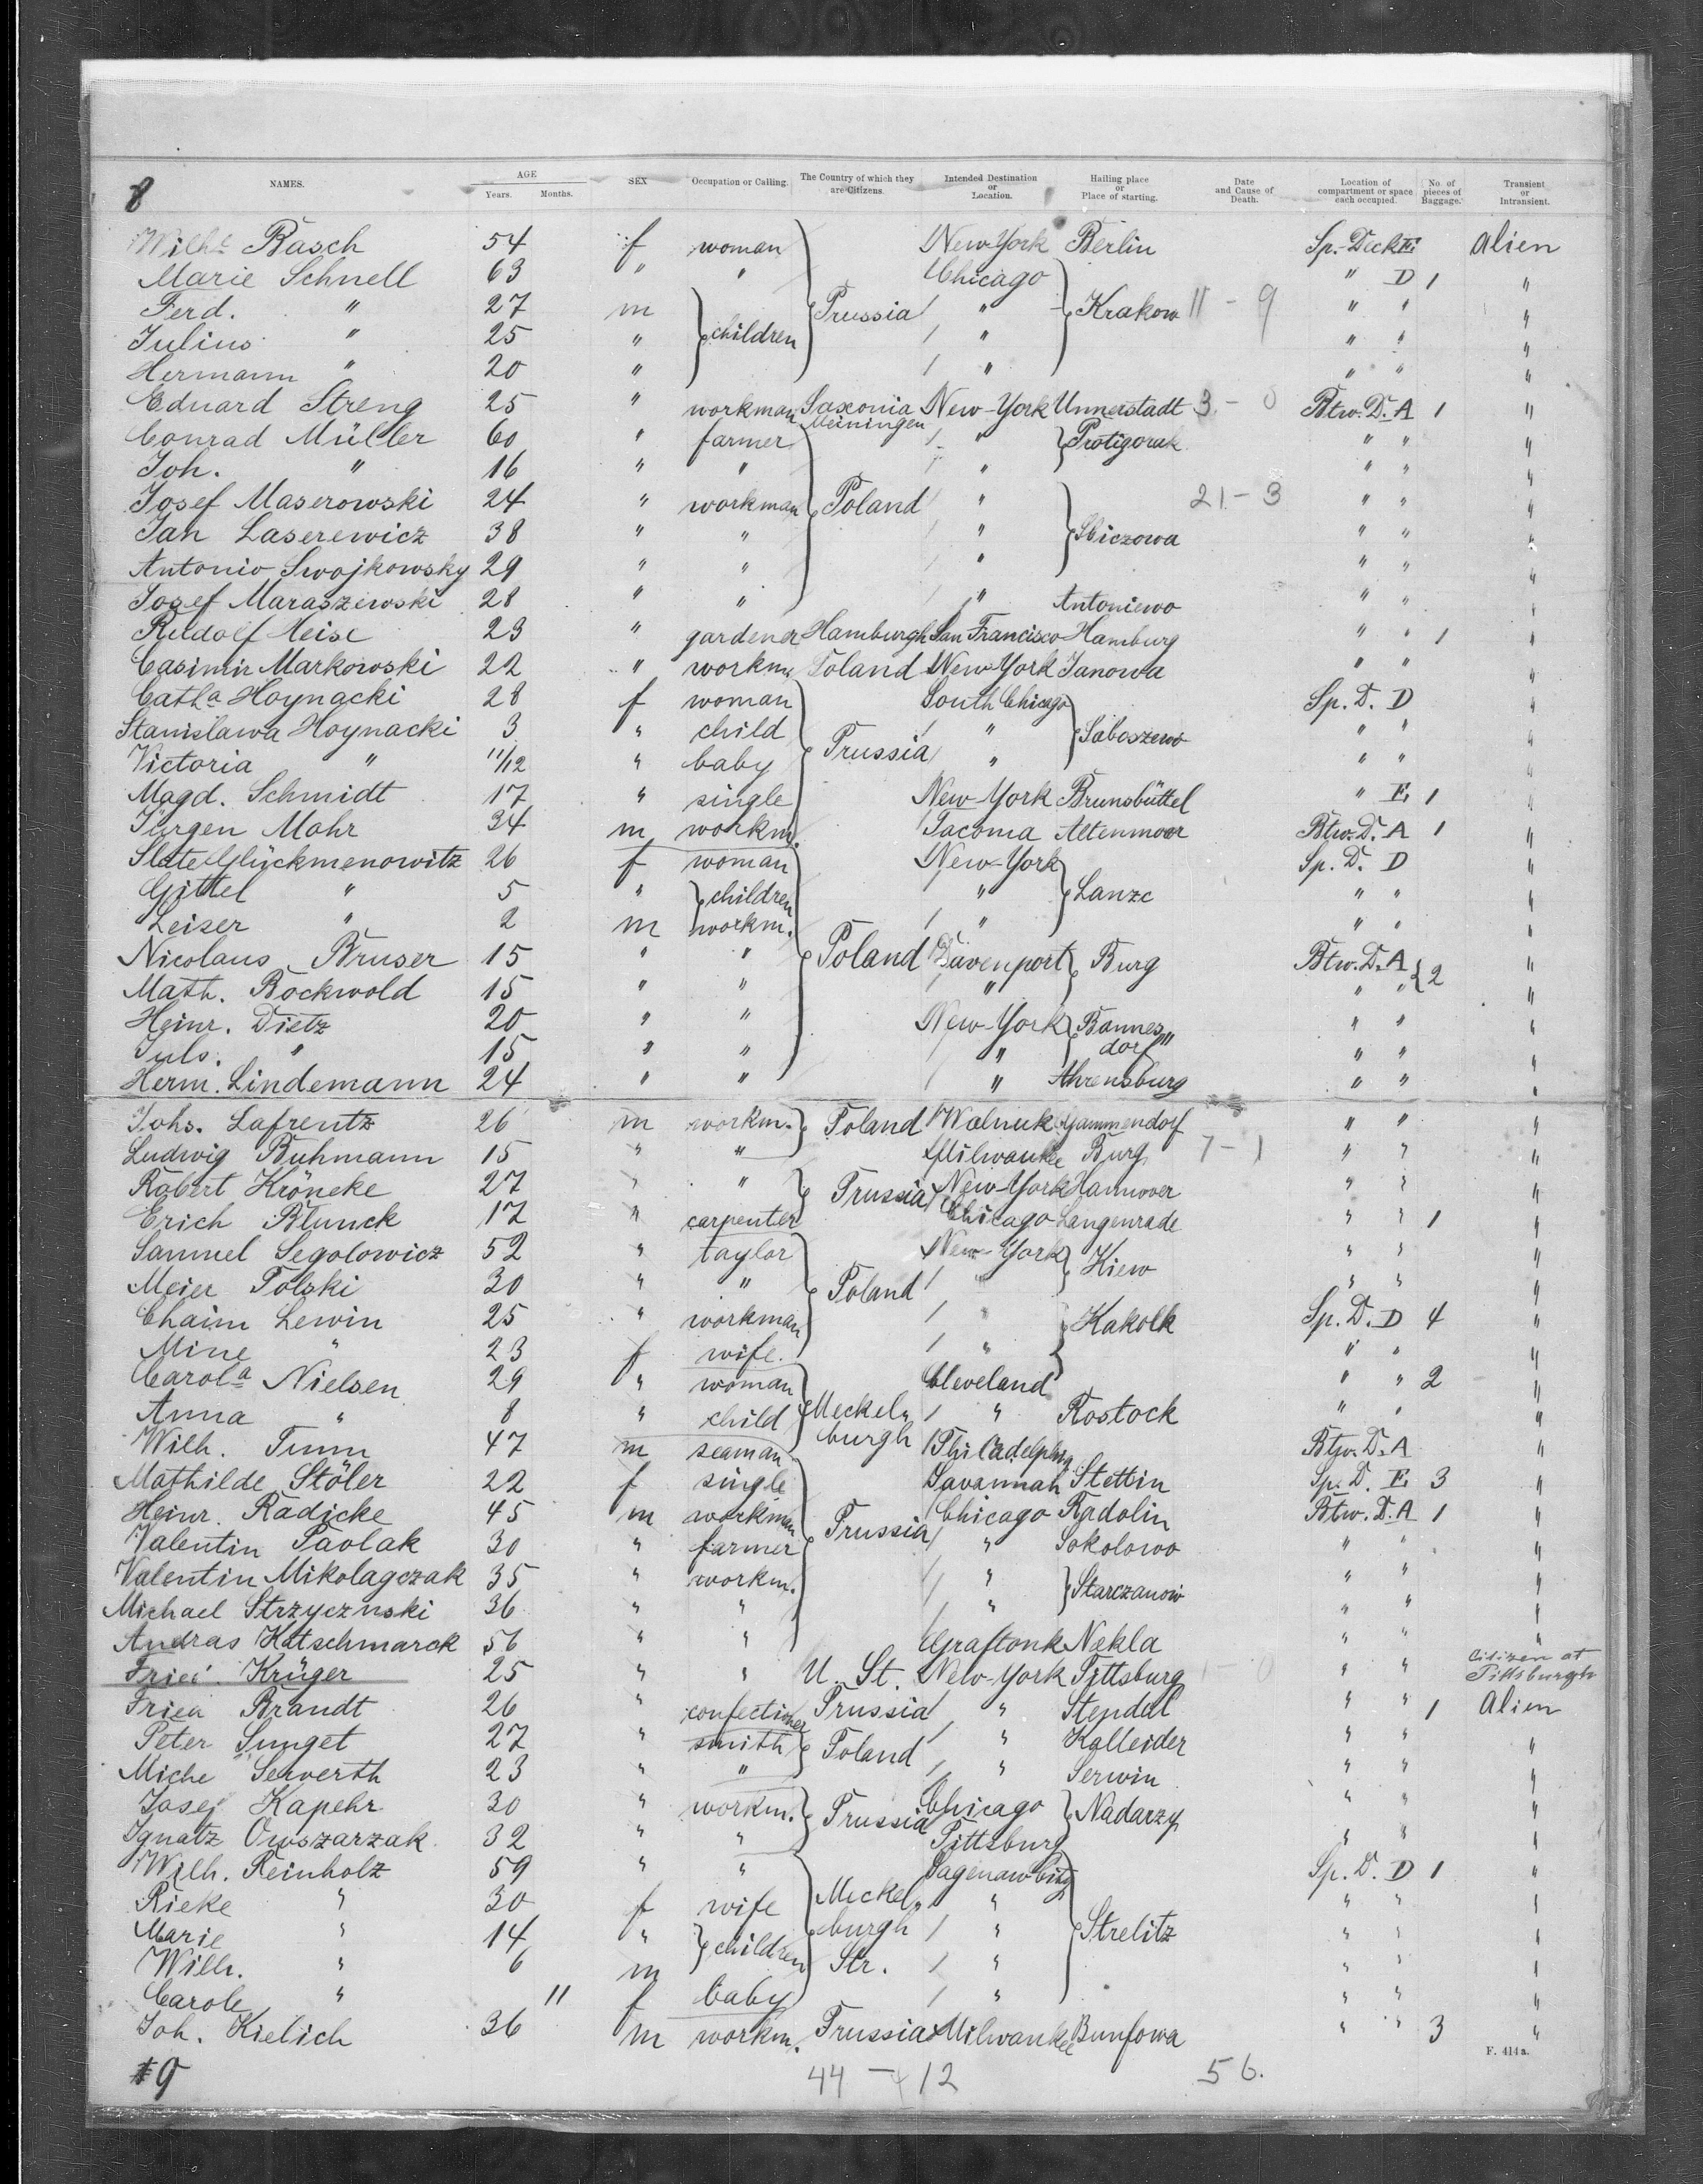 8
NAMES. AGE Years. Months. SEX Occupation or Calling. The Country of which they are Citizens. Intended Destination or Location. Hailing place or Place of starting. Date and Cause of Death. Location of compartment or space each occupied. No. of pieces of Baggage. Transient or Intransient.
Wilh. Basch 54 f woman New-York Berlin Sp. Deck E. Alien
Marie Schnell 63 " " Chicago " D 1 "
Ferd. " 27 m children Prussia " Krakow 11 - 9 " " "
Julius " 25 " " " " "
Hermann " 20 " " " " "
Eduard Streng 25 " workman Saxonia Meiningen New-York Unnerstadt 3 - 0 Btw. D. A 1 "
Conrad Müller 60 " farmer " Protigorak " " "
Joh. " 16 " " " " " "
Josef Maserowski 24 " workman Poland " 21 - 3 " " "
Jan Laserewicz 38 " " " Sbiczowa " " "
Antonio Swojkowsky 29 " " " " " "
Josef Maraszewski 28 " " " Antoniewo " " "
Rudolf Heise 23 " gardener Hamburgh San Francisco Hamburg " " 1 "
Casimir Markowski 22 " workm. Poland New-York Janowa " " "
Catha Hoynacki 28 f woman South Chicago Sp. D. D "
Stanislawa Hoynacki 3 " child " Saboszewo " " "
Victoria " 11/12 " baby Prussia " " " "
Magd. Schmidt 17 " single New-York Brunsbüttel " E. 1 "
Jürgen Mohr 34 m workm. Tacoma Altenmoor Btw. D. A 1 "
Slate Glückmenowitz 26 f woman New-York Sp. D. D "
Gittel " 5 " children " Lanzc " " "
Leiser " 2 m workm. " " " "
Nicolaus Bruser 15 " " Poland Davenport Burg Btw. D. A 2 "
Math. Bockwold 15 " " " " " "
Heinr. Dietz 20 " " New-York Bannes " " "
Juls. " 15 " " " dorf " " "
Herm. Lindemann 24 " " " Ahrensburg " " "
Johs. Lafrentz 26 m workm. Poland Walnuk Gammendorf " " "
Ludwig Buhmann 15 " " Milwaukee Burg 7 - 1 " " "
Robert Kröncke 27 " " Prussia New-York Hannover " " "
Erich Blunck 17 " carpenter Chicago Langenrade " " 1 "
Samuel Segolowicz 52 " taylor New-York Kiew " " "
Meier Polski 30 " " Poland " " " "
Chaim Lewin 25 " workman " Kakolk Sp. D. D 4 "
Mine " 23 f wife. " " " "
Carola Nielsen 29 " woman Cleveland " " 2 "
Anna " 8 " child Meckel- " Rostock " " "
Wilh. Timm 47 m seaman burgh Philadelphia Btw. D. A "
Mathilde Stöler 22 f single Savannah Stettin Sp. D. E. 3 "
Heinr. Radicke 45 m workman Prussia Chicago Radolin Btw. D. A 1 "
Valentin Pavlak 30 " farmer " Sokolowo " " "
Valentin Mikolagczak 35 " workm. " Starczanow " " "
Michael Strzycznski 36 " " " " " "
Andras Katschmarck 56 " " Graftonk Nekla " " "
Fried. Krüger 25 " " U. St. New-York Pittsburg " " Citizen at Pittsburgh
Fried. Brandt 26 " confectioner Prussia " Stendal " " 1 Alien
Peter Sunget 27 " smith Poland " Kalleider " " "
Miche Serverth 23 " " " Serwin " " "
Josef Kapehr 30 " workm. Prussia Chicago Nadarzy " " "
Ignatz Owszarzak 32 " " Pittsburg " " "
Wilh. Reinholz 59 " " Sagenaw City Sp. D. D 1 "
Rieke " 30 f wife Meckel- " " " "
Marie " 14 " children burgh " Strelitz " " "
Wilh. " 6 m Str. " " " "
Carole " 11 f baby " " " "
Joh. Kielich 36 m workm. Prussia Milwaukee Bunfowa " " 3 "
F. 414 a.
9 44 - 12 56.